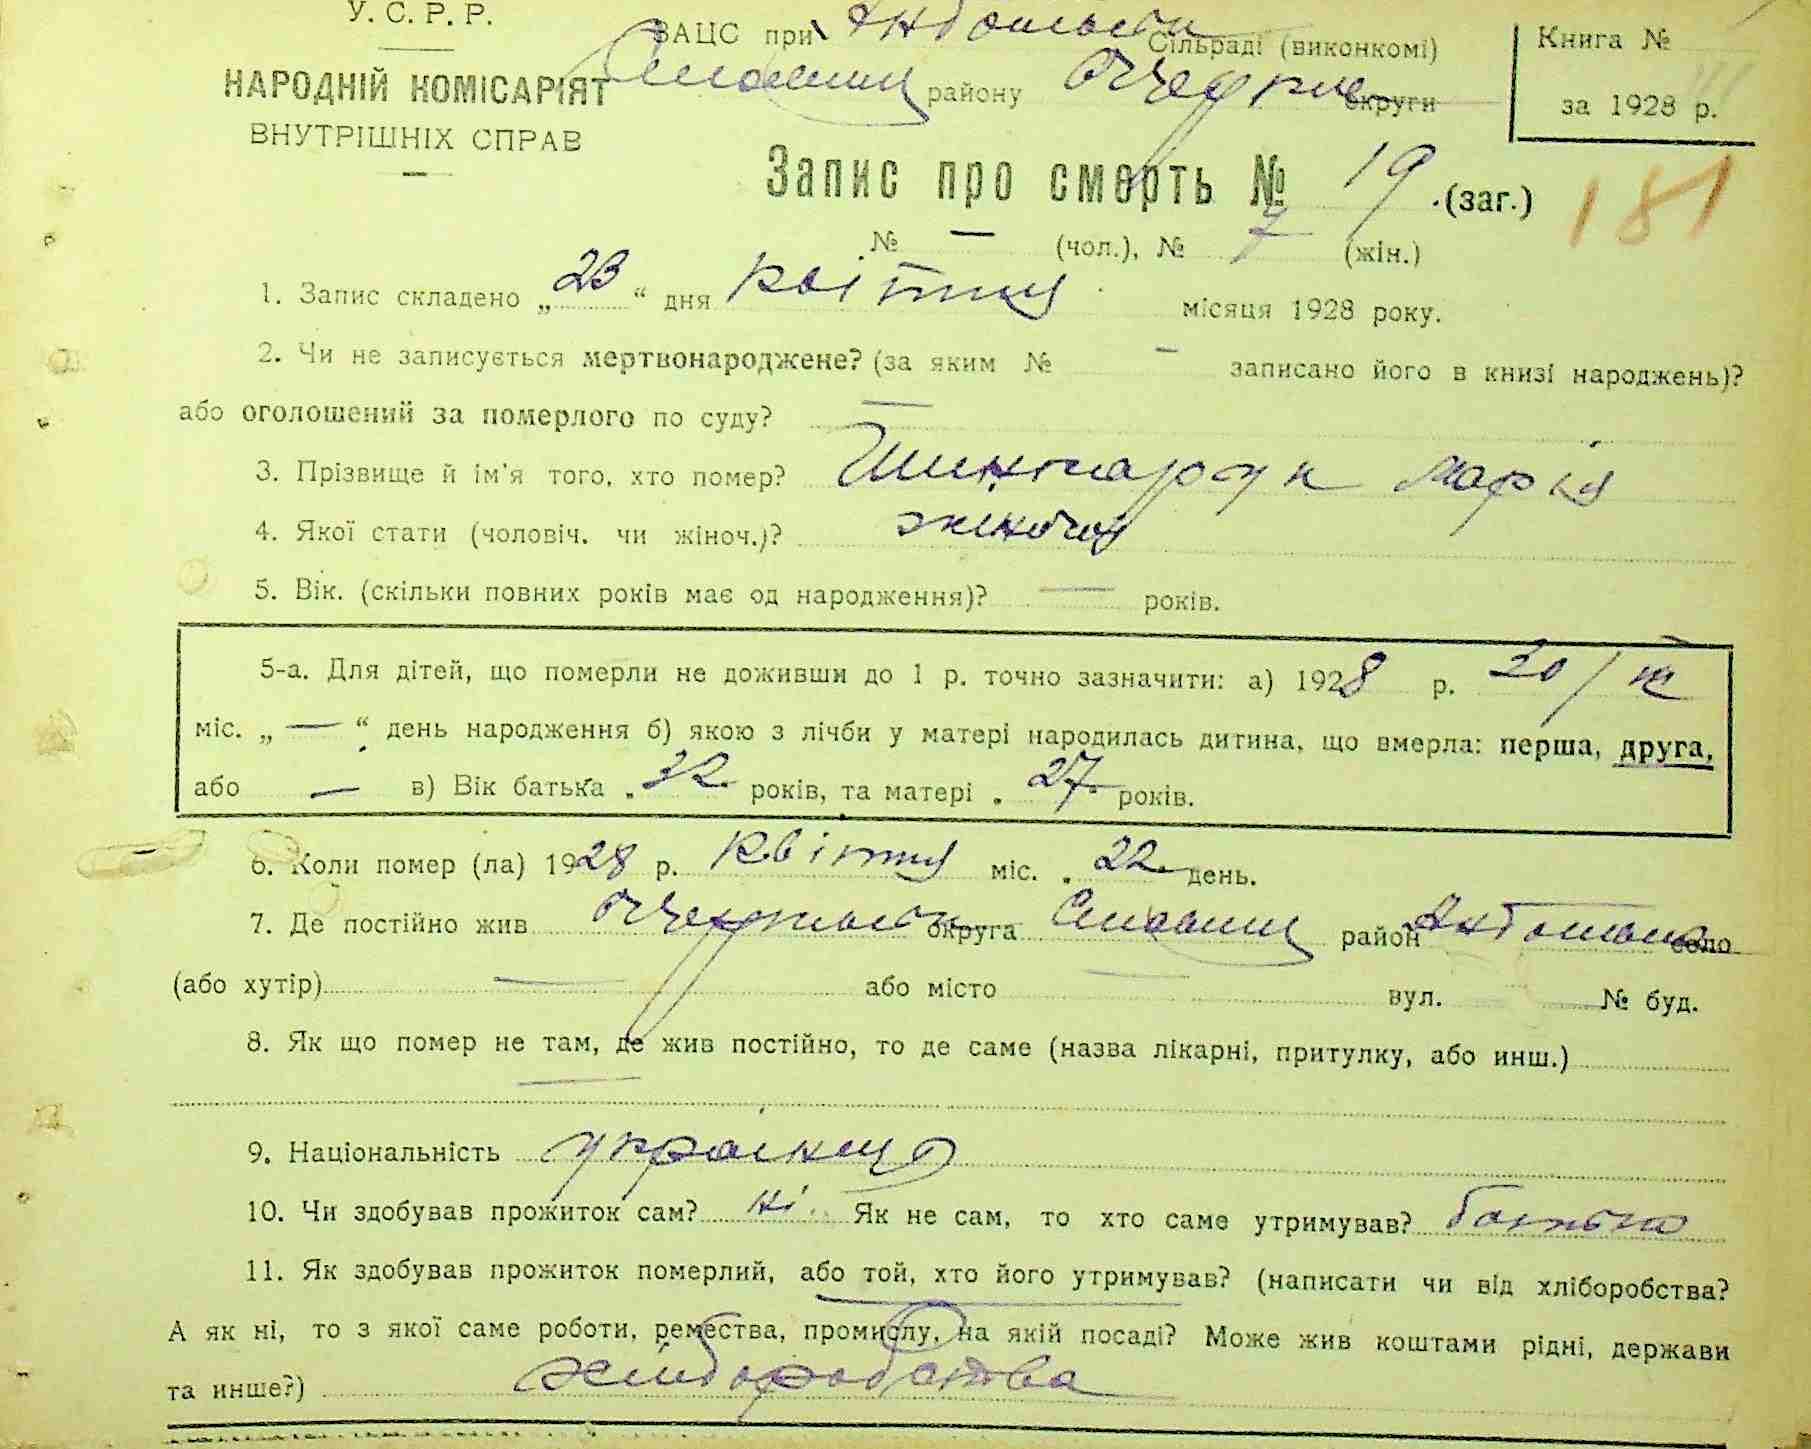 У. С. Р. Р.
НАРОДНІЙ КОМІСАРІЯТ
ВНУТРІШНІХ СПРАВ
ЗАЦС при Сільраді (виконкомі)
району округи
Книга №
за 1928 р.
Запис про смерть № 19 (заг.)
181
№ — (чол.), № 7 (жін.)
1. Запис складено „23“ дня квітня місяця 1928 року.
2. Чи не записується мертвонароджене? (за яким № — записано його в книзі народжень)?
або оголошений за померлого по суду? —
3. Прізвище й ім'я того, хто помер? Шинкарук Марія
4. Якої стати (чоловіч. чи жіноч.)? жіночої
5. Вік. (скільки повних років має од народження)? — років.
5-а. Для дітей, що померли не доживши до 1 р. точно зазначити: а) 1928 р. 30/
міс. „—“ день народження б) якою з лічби у матері народилась дитина, що вмерла: перша, друга,
або — в) Вік батька „32 років, та матері „27 років.
6. Коли помер (ла) 1928 р. квітня міс. „22 день.
7. Де постійно жив округа район село
(або хутір) — або місто — вул. № буд.
8. Як що помер не там, де жив постійно, то де саме (назва лікарні, притулку, або инш.)
—
9. Національність
10. Чи здобував прожиток сам? ні. Як не сам, то хто саме утримував? батько
11. Як здобував прожиток померлий, або той, хто його утримував? (написати чи від хліборобства?
А як ні, то з якої саме роботи, ремества, промислу, на якій посаді? Може жив коштами рідні, держави
та инше?) хліборобства